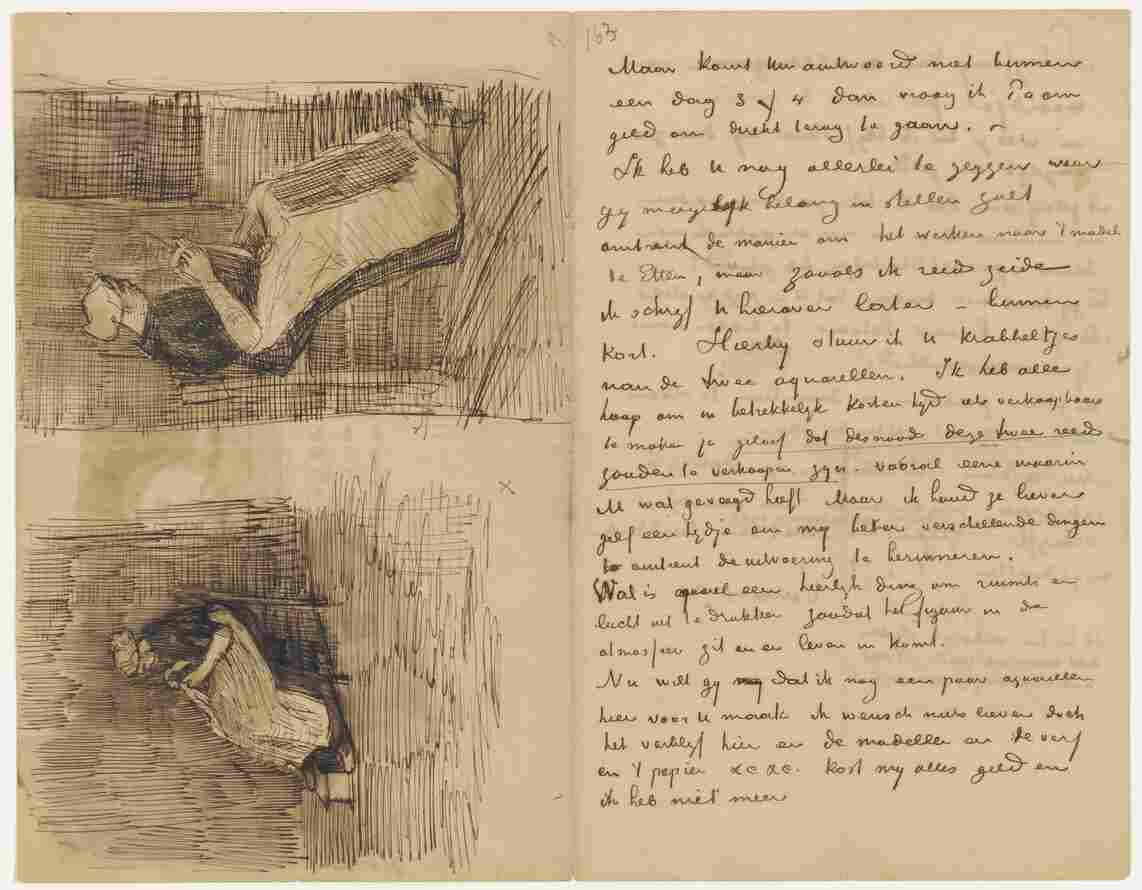 163
Maar komt Uw antwoord niet binnen
een dag 3 of 4 dan vraag ik Pa om
geld om direkt terug te gaan. –
Ik heb U nog allerlei te zeggen waar
gij mogelijk belang in stellen zult
omtrent de manier om het werken naar 't model
te Etten, maar zooals ik reeds zeide
ik schrijf U hierover later – binnen
kort. Hierbij stuur ik U krabbeltjes
van de twee aquarellen. Ik heb alle
hoop om in betrekkelijk korten tijd iets verkoopbaars
te maken ja geloof dat desnoods deze twee reeds
zouden te verkoopen zijn. vooral eene waarin
M wat geveegd heeft Maar ik houd ze liever
zelf een tijdje om mij beter verschillende dingen
omtrent de uitvoering te herinneren.
Wat is aquarel een heerlijk ding om ruimte en
lucht uit te drukken zoodat het figuur in de
atmosfeer zit en er leven in komt.
Nu wilt gij dat ik nog een paar aquarellen
hier voor U maak ik wensch niets liever doch
het verblijf hier en de modellen en de verf
en 't papier &c &c. kost mij alles geld en
ik heb niet meer